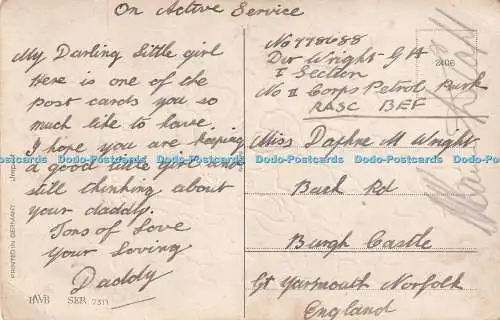 On Active Service
My Darling Little girl
Here is one of the
post cards you so
much like to have.
I hope you are keeping
a good little girl and
still thinking about
your daddy.
Tons of Love
Your Loving
Daddy
No 778688
Dvr Wright G H
I Section
No II Corps Petrol Park
RASC BEF
Miss Daphne M Wright
Back Rd
Burgh Castle
Gt Yarmouth Norfolk
England
2406
PRINTED IN GERMANY
HWB SER 7311
Dodo-Postcards Dodo-Postcards Dodo-Postcards Dodo-Postcards Dodo-Postcards